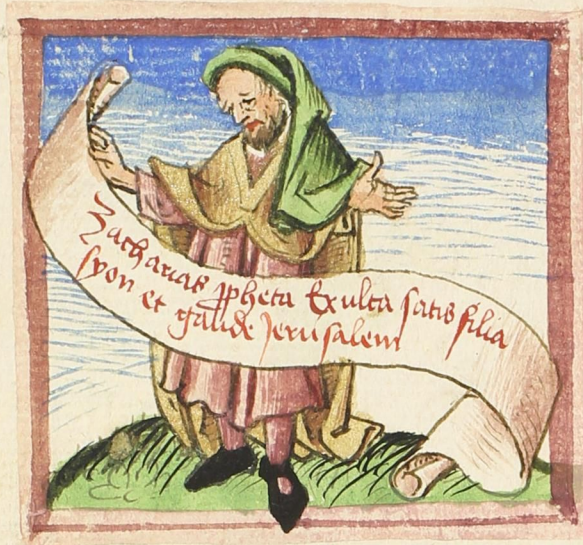 Zacharias ꝓpheta Exulta satis filia
syon et gaude Jerusalem